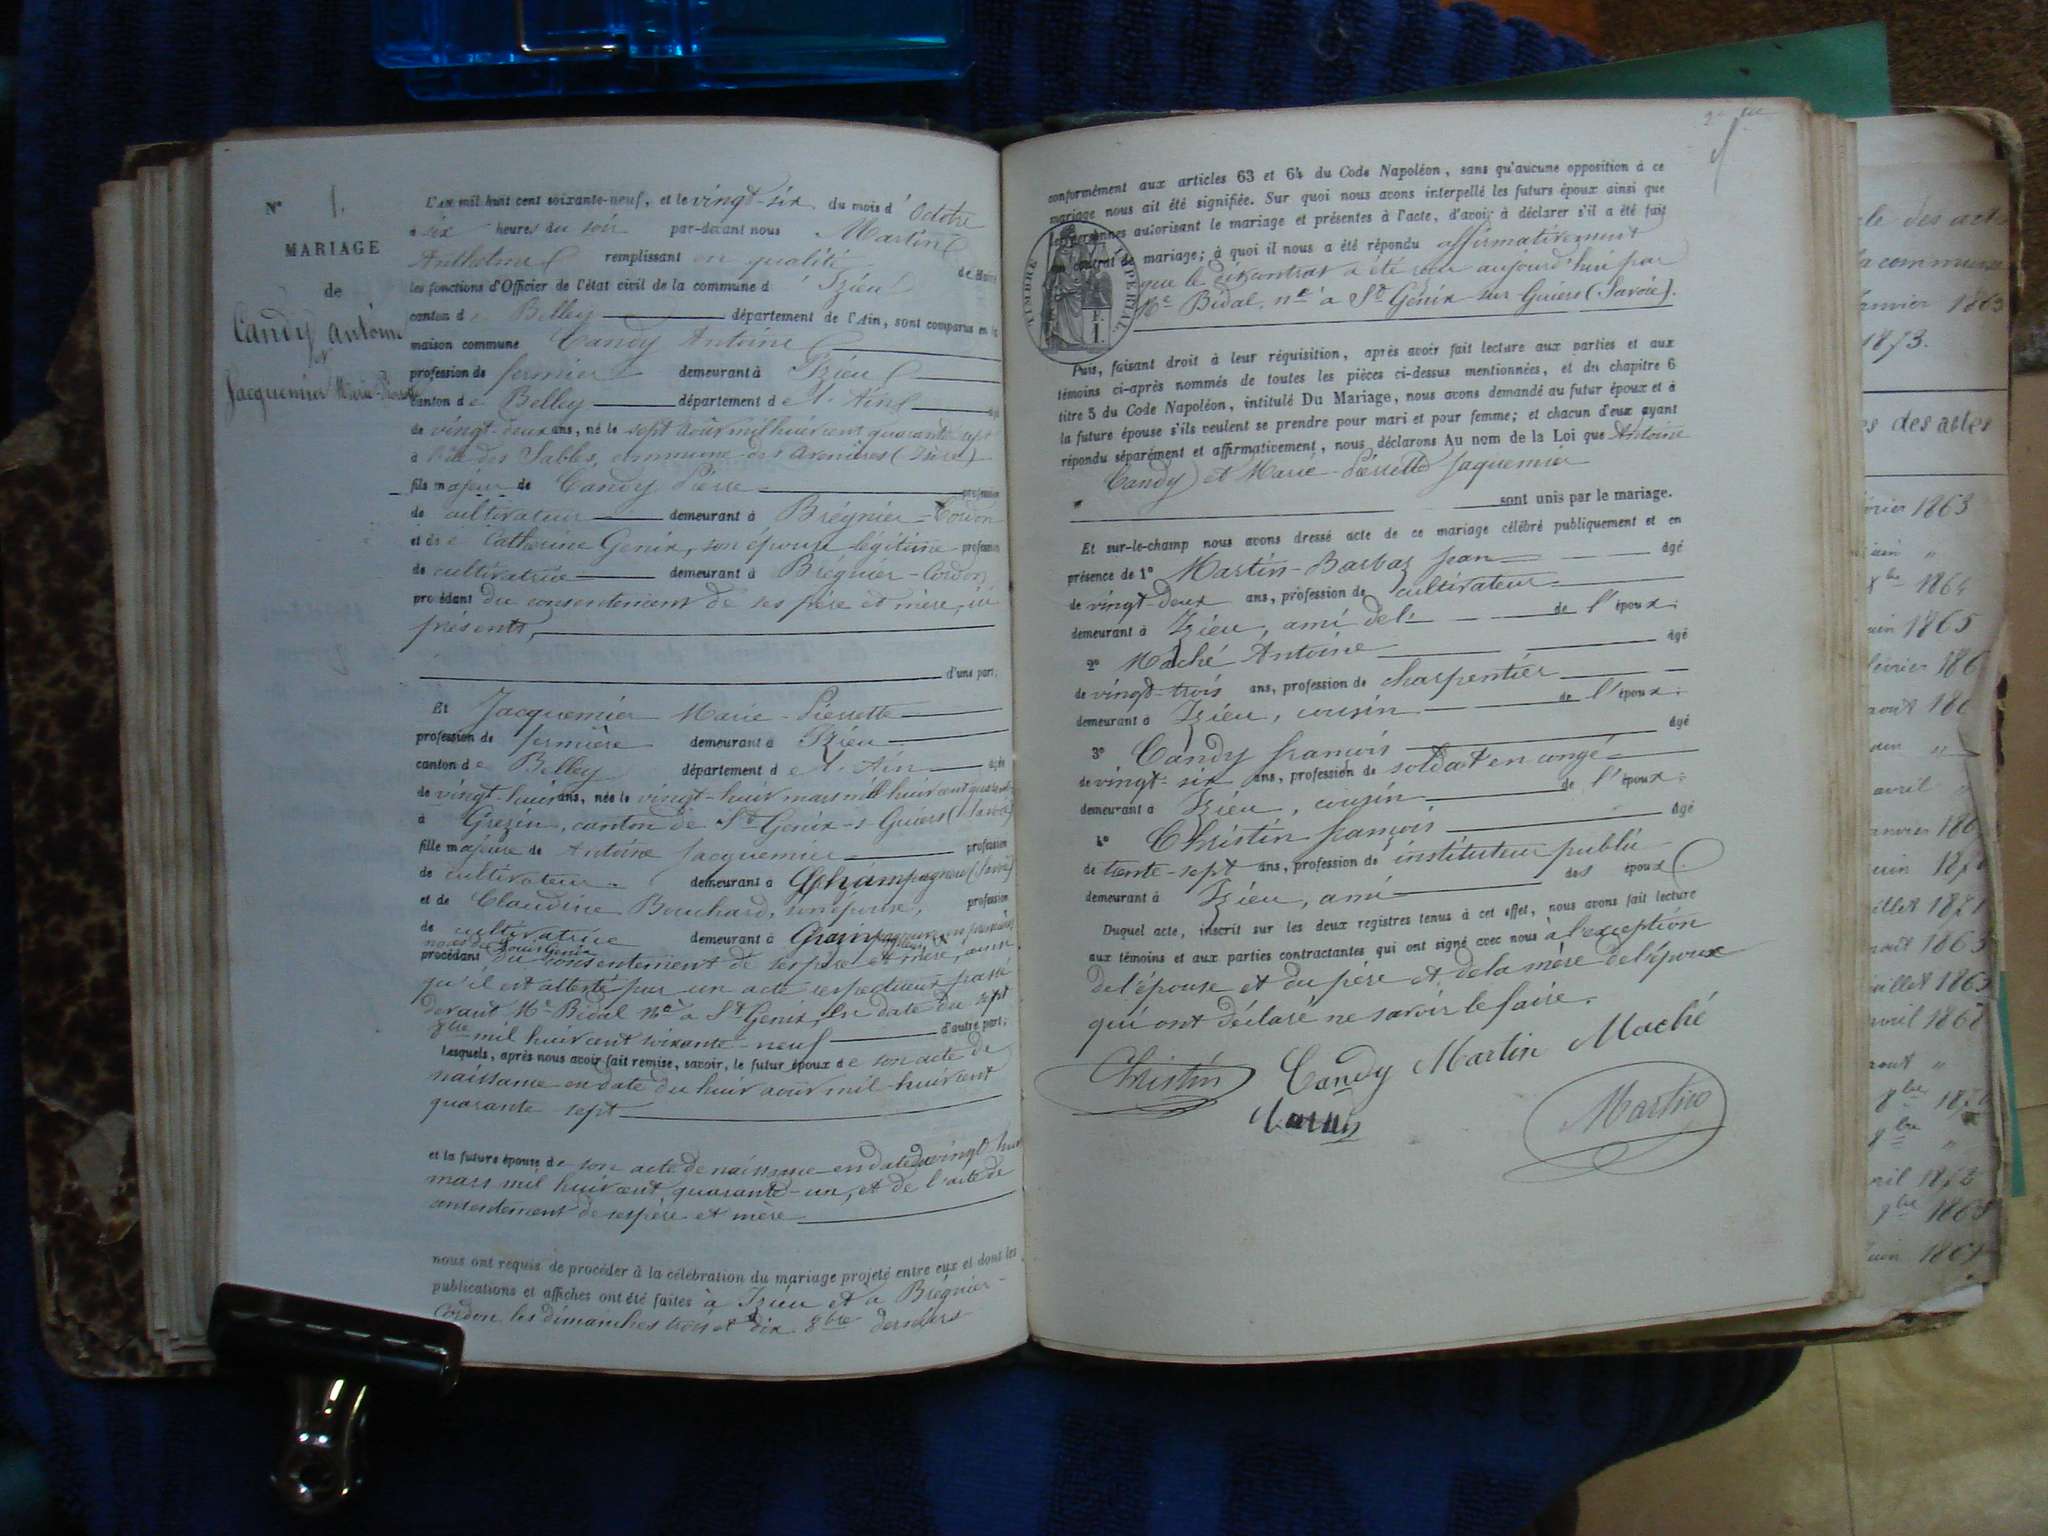 N° 1.
MARIAGE
de
Candy Antoine
et
Jacquemier Marie-Pierrette
L'AN mil huit cent soixante-neuf, et le vingt-six du mois d'Octobre
à six heures du soir par-devant nous Martin
Anthelme remplissant en qualité de Maire
les fonctions d'Officier de l'état civil de la commune d'Izieu
canton de Belley département de l'Ain, sont comparus en la
maison commune Candy Antoine
profession de fermier demeurant à Izieu
canton de Belley département de l'Ain âgé
de vingt-deux ans, né le sept août mil huit cent quarante sept
à des Sables, commune des Avenières (Isère)
fils majeur de Candy Pierre profession
de cultivateur demeurant à Brégnier-Cordon
et de Catherine Genix, son épouse légitime profession
de cultivatrice demeurant à Brégnier-Cordon
procédant du consentement de ses père et mère, ici
présents,
d'une part;
Et Jacquemier Marie-Pierrette
profession de fermière demeurant à Izieu
canton de Belley département de l'Ain âgée
de vingt-huit ans, née le vingt-huit mars mil huit cent quarante
à Grezin, canton de St Genix-s-Guiers (Savoie)
fille majeure de Antoine Jacquemier profession
de cultivateur demeurant à Champagneux (Savoie)
et de Claudine Bouchard, son épouse, profession
de cultivatrice demeurant à
procédant du consentement de ses père et mère, ainsi
qu'il est attesté par un acte respectueux passé
devant Me Bidal Nre à St Genix, en date du sept
8bre mil huit cent soixante-neuf d'autre part;
Lesquels, après nous avoir fait remise, savoir, le futur époux de son acte de
naissance en date du huit août mil huit cent
quarante sept
et la future épouse de son acte de naissance en date du vingt-huit
mars mil huit cent quarante-un, et de l'acte de
consentement de ses père et mère
nous ont requis de procéder à la célébration du mariage projeté entre eux et dont les
publications et affiches ont été faites à Izieu et à Brégnier-
Cordon les dimanches trois et dix 8bre derniers
conformément aux articles 63 et 64 du Code Napoléon, sans qu'aucune opposition à ce
mariage nous ait été signifiée. Sur quoi nous avons interpellé les futurs époux ainsi que
les personnes autorisant le mariage et présentes à l'acte, d'avoir à déclarer s'il a été fait
un contrat de mariage; à quoi il nous a été répondu affirmativement
que le dit contrat a été reçu aujourd'hui par
Me Bidal, Nre à St Génix sur Guiers (Savoie).
TIMBRE IMPÉRIAL
F. 1.
Puis, faisant droit à leur réquisition, après avoir fait lecture aux parties et aux
témoins ci-après nommés de toutes les pièces ci-dessus mentionnées, et du chapitre 6
titre 5 du Code Napoléon, intitulé Du Mariage, nous avons demandé au futur époux et à
la future épouse s'ils veulent se prendre pour mari et pour femme; et chacun d'eux ayant
répondu séparément et affirmativement, nous déclarons Au nom de la Loi que Antoine
Candy et Marie-Pierrette Jaquemier
sont unis par le mariage.
Et sur-le-champ nous avons dressé acte de ce mariage célébré publiquement et en
présence de 1° Martin-Barbaz Jean âgé
de vingt-deux ans, profession de cultivateur
demeurant à Izieu, ami de l' de l'époux;
2° Maché Antoine âgé
de vingt-trois ans, profession de charpentier
demeurant à Izieu, cousin de l'époux;
3° Candy françois âgé
de vingt-six ans, profession de soldat en congé
demeurant à Izieu, cousin de l'époux;
4° Christin françois âgé
de trente-sept ans, profession de instituteur public
demeurant à Izieu, ami des époux.
Duquel acte, inscrit sur les deux registres tenus à cet effet, nous avons fait lecture
aux témoins et aux parties contractantes qui ont signé avec nous à l'exception
de l'épouse et du père et de la mère de l'époux
qui ont déclaré ne savoir le faire.
Christin Candy Martin Maché
Martin
janvier 1863
1873.
des actes
février 1863
juin "
Xbre 1864
juin 1865
février 186
août 186
avril "
juillet 1871
août 1863
juillet 1863
avril 1867
août "
8bre
8bre "
avril
9bre
juin